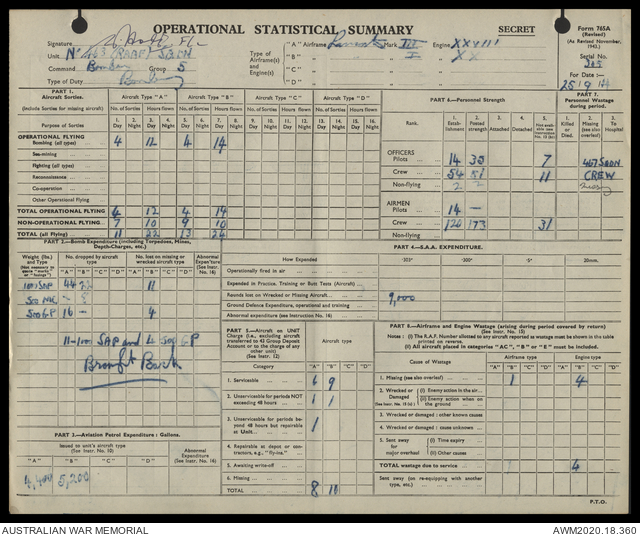 OPERATIONAL STATISTICAL SUMMARY
SECRET
Form 765A
(Revised)
(As Revised November, 1943.)
Signature F/L.
Unit. No 463 (RAAF) SQDN
Command Bomber Group 5
Type of Duty Bombing
Type of Airframe(s) and Engine(s):
"A" Airframe Lancaster Mark III Engine XXVIII
"B" I XX
"C"
"D"
Serial No. 305
For Date :—
25/9/44
PART 1.
Aircraft Sorties.
(Include Sorties for missing aircraft)
Purpose of Sorties
Aircraft Type "A" Aircraft Type "B" Aircraft Type "C" Aircraft Type "D"
No. of Sorties Hours flown No. of Sorties Hours flown No. of Sorties Hours flown No. of Sorties Hours flown
1. Day 2. Night 3. Day 4. Night 5. Day 6. Night 7. Day 8. Night 9. Day 10. Night 11. Day 12. Night 13. Day 14. Night 15. Day 16. Night
OPERATIONAL FLYING
Bombing (all types) 4 12 4 14
Sea-mining
Fighting (all types)
Reconnaissance
Co-operation
Other Operational Flying
TOTAL OPERATIONAL FLYING 4 12 4 14
NON-OPERATIONAL FLYING 7 10 9 10
TOTAL (all Flying) 11 22 13 24
PART 6.—Personnel Strength
Rank. 1. Establishment 2. Posted strength 3. Attached 4. Detached
OFFICERS
Pilots 14 35 7
Crew 54 51 11
Non-flying 2 2
AIRMEN
Pilots 14 —
Crew 126 173 31
Non-flying
PART 7.
Personnel Wastage during period.
1. Killed or Died. 2. Missing (see also overleaf) 3. To Hospital
467 SQDN
CREW
PART 2.—Bomb Expenditure (including Torpedoes, Mines, Depth-Charges, etc.)
Weight (lbs.) and Type
No. dropped by aircraft type
No. lost on missing or wrecked aircraft type
Abnormal Expenditure (See Instr. No. 16)
"A" "B" "C" "D" "A" "B" "C" "D"
1000 SAP 44 22 11
500 MC — 8
500 GP 16 — 4
11-1000 SAP and 4 500 GP
Brought Back
PART 3.—Aviation Petrol Expenditure : Gallons.
Issued to unit's aircraft type
(See Instr. No. 10)
Abnormal Expenditure (See Instr. No. 16)
"A" "B" "C" "D"
4,400 5,200
PART 4.—S.A.A. EXPENDITURE.
How Expended ·303" ·300" ·5" 20mm.
Operationally fired in air
Expended in Practice, Training or Butt Tests (Aircraft)
Rounds lost on Wrecked or Missing Aircraft 9,000
Ground Defence Expenditure, operational and training
Abnormal expenditure (see Instruction No. 16)
PART 5.—Aircraft on UNIT Charge (i.e., excluding aircraft transferred to 43 Group Deposit Account or to the charge of any other unit) (See Instr. 12)
Category
Aircraft type
"A" "B" "C" "D"
1. Serviceable 6 9
2. Unserviceable for periods NOT exceeding 48 hours 1 1
3. Unserviceable for periods beyond 48 hours but repairable at Unit 1
4. Repairable at depot or contractors, e.g. "fly-ins."
5. Awaiting write-off
6. Missing
TOTAL 8 10
PART 8.—Airframe and Engine Wastage (arising during period covered by return)
(See Instr. No. 15)
Notes : (i) The R.A.F. Number allotted to any aircraft reported as wastage must be shown in the table printed on reverse.
(ii) All aircraft placed in categories "AC", "B" or "E" must be included.
Cause of Wastage
Airframe type Engine type
"A" "B" "C" "D" "A" "B" "C" "D"
1. Missing (see also overleaf) 1 4
2. Wrecked or Damaged (See Instr. No. 15 (c)) (i) Enemy action in the air
(ii) Enemy action when on the ground
3. Wrecked or damaged : other known causes
4. Wrecked or damaged : cause unknown
5. Sent away for major overhaul (i) Time expiry
(ii) Other causes
TOTAL wastage due to service 4
Sent away (on re-equipping with another type, etc.)
P.T.O.
AUSTRALIAN WAR MEMORIAL
AWM2020.18.360